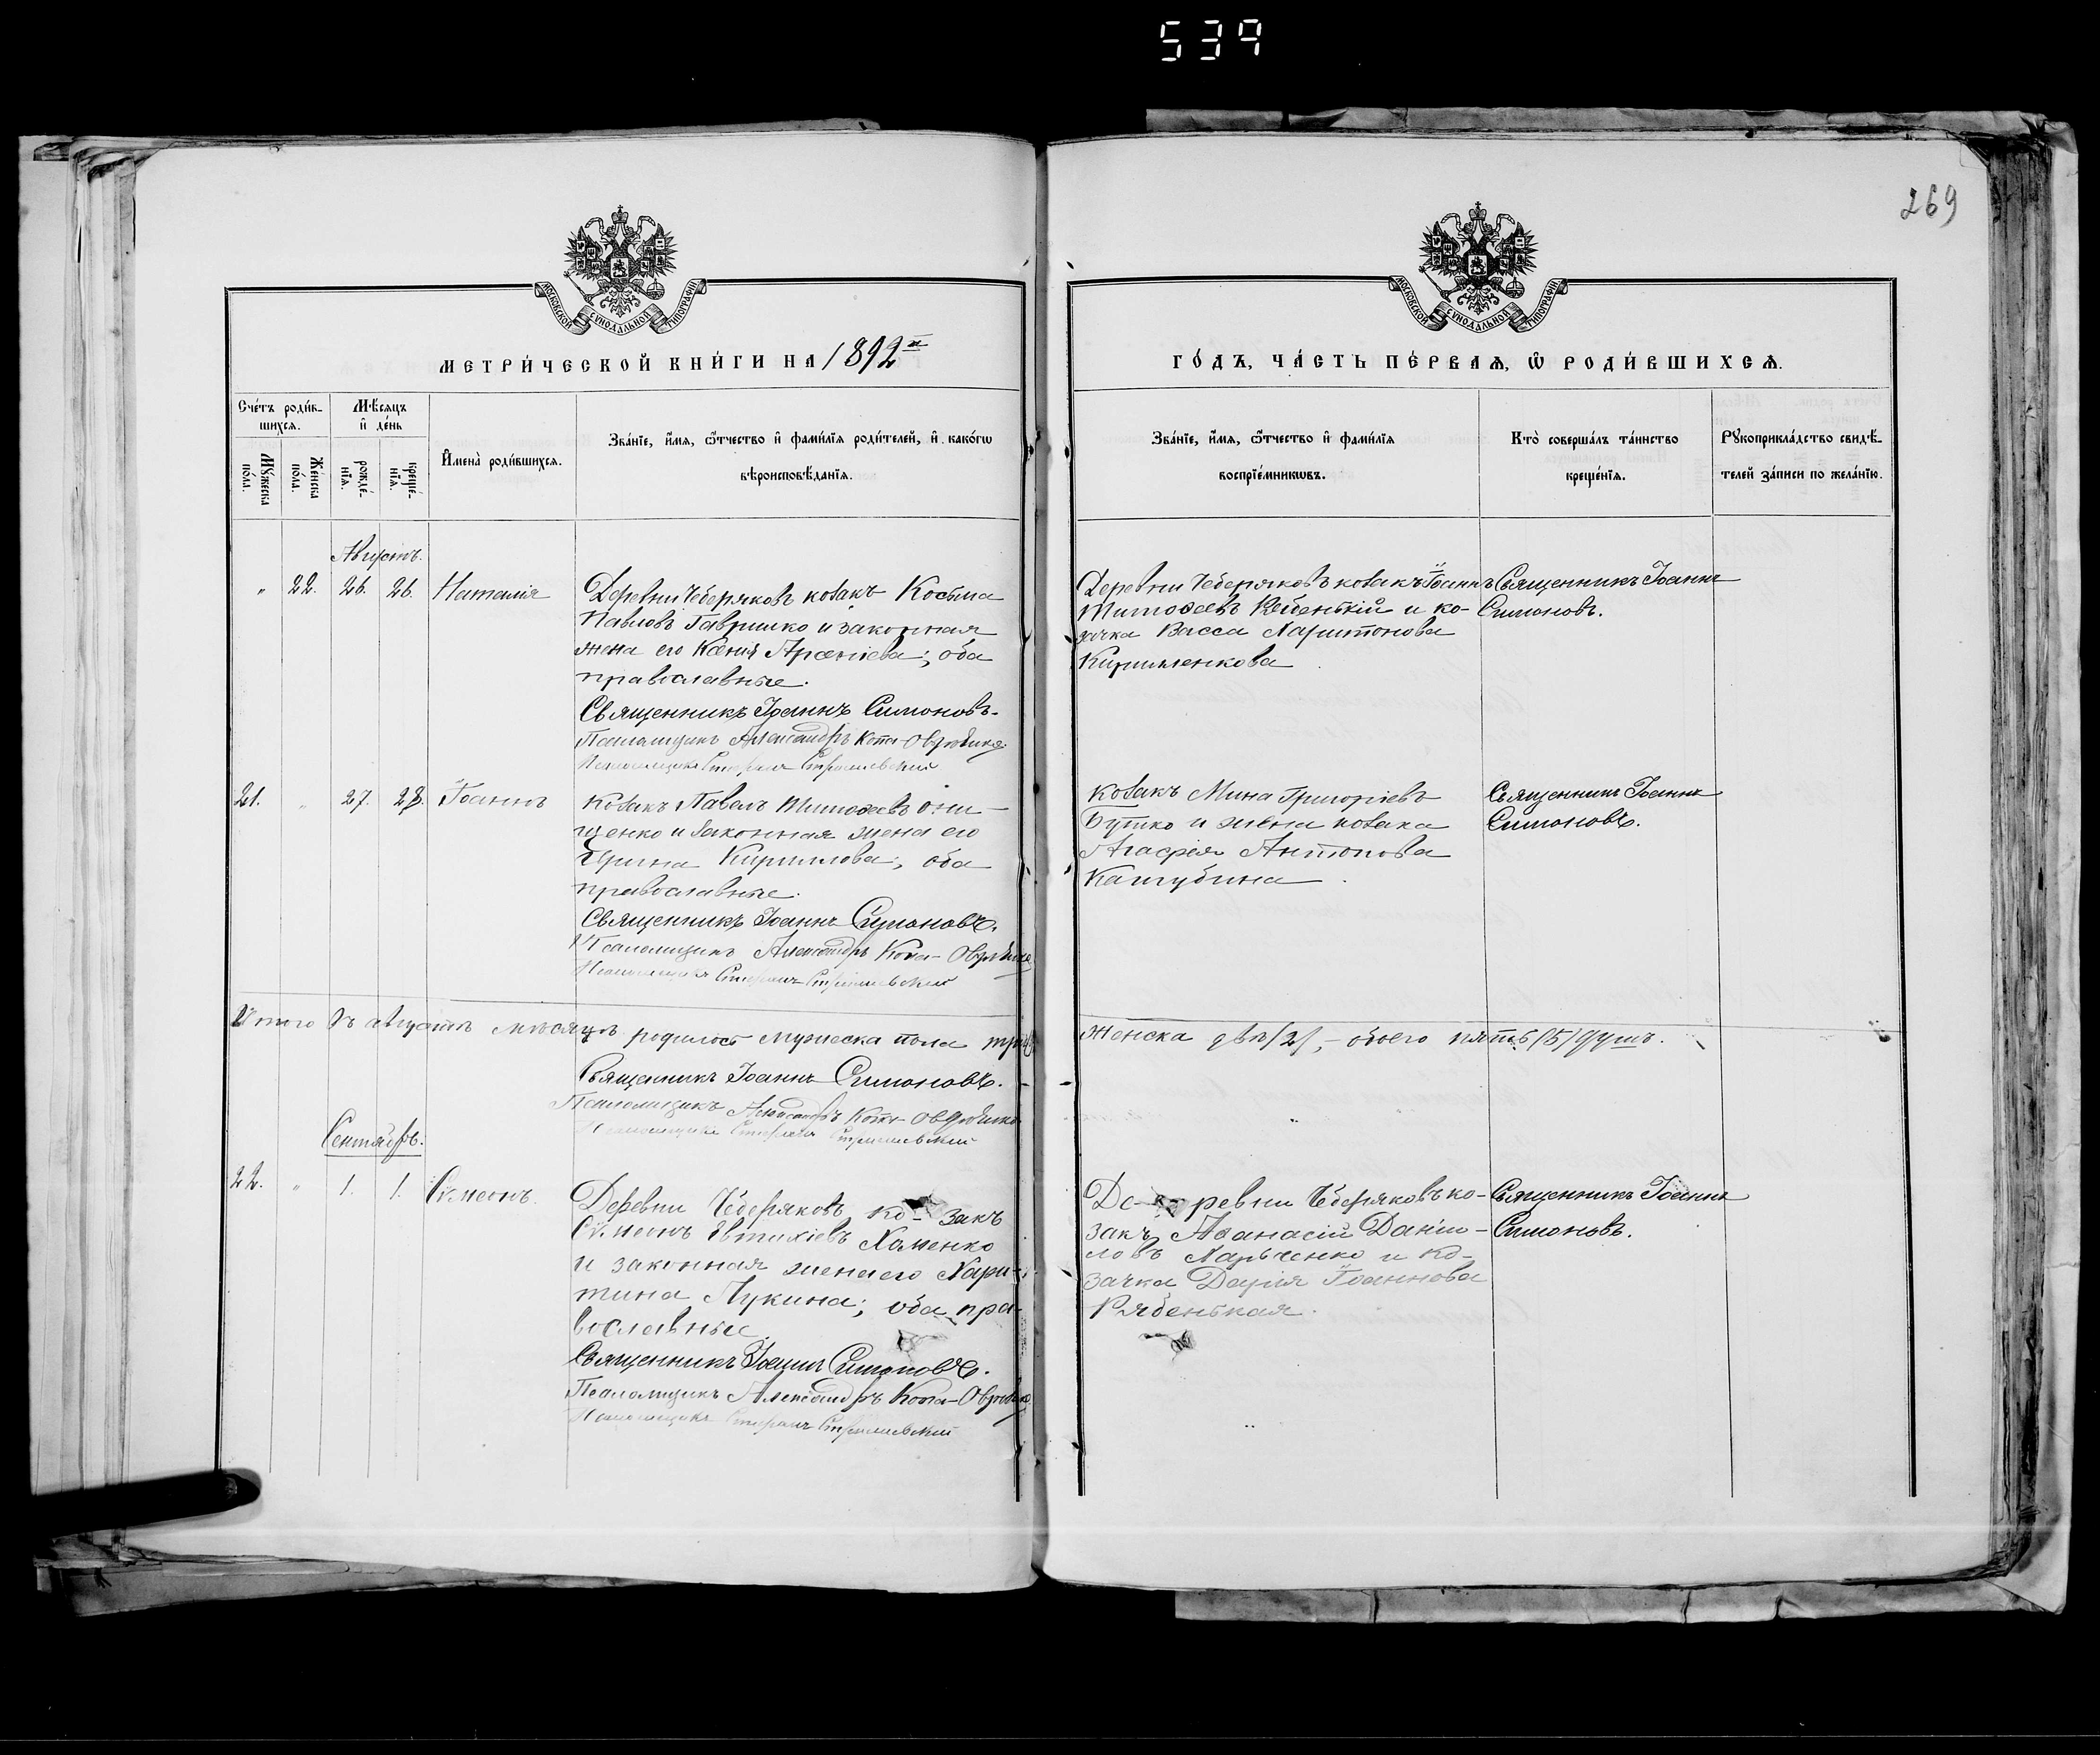 539
269
МОСКОВСКОЙ СУНОДАЛЬНОЙ ТИПОГРАФІИ
МОСКОВСКОЙ СУНОДАЛЬНОЙ ТИПОГРАФІИ
МЕТРИ́ЧЕСКОЙ КНИ́ГИ НА 1892й
ГО́ДЪ, ЧА́СТЬ ПЕ́РВАѦ, Ѡ҆ РОДИ́ВШИХСѦ.
Сче́тъ роди́в-
шихсѧ.
Мѣ́сяцъ
и҆ де́нь
Му́жеска
по́ла.
Же́нска
по́ла.
рожде́-
нїѧ.
креще́-
нїѧ.
И҆мена̀ роди́вшихсѧ.
Зва́нїе, и҆́мѧ, ѻ҆́тчество и҆ фами́лїѧ роди́телей, и҆ како́гѡ
вѣроисповѣ́данїѧ.
Зва́нїе, и҆́мѧ, ѻ҆́тчество и҆ фами́лїѧ
воспрїе́мникѡвъ.
Кто̀ соверша́лъ та́инство
креще́нїѧ.
Рꙋкоприкла́дство свидѣ́-
телей за́писи по жела́нїю.
Августъ.
" 22. 26. 26. Наталія
Деревни Чеберяковъ козакъ Косьма
Павловъ Гавришко и законная
жена его Ксенія Арсеніева; оба
православные.
Священникъ Іоаннъ Симоновъ.
Псаломщикъ Александръ Кота-
Псаломщикъ Стефанъ
Деревни Чеберяковъ козакъ Іоаннъ
Тимоѳеевъ и ко-
зачка Васса Харитонова
Кириленкова
Священникъ Іоаннъ
Симоновъ.
21. " 27. 28. Іоаннъ
Козакъ Павелъ Тимоѳеевъ Они-
щенко и законная жена его
Ирина Кириллова; оба
православные.
Священникъ Іоаннъ Симоновъ.
Псаломщикъ Александръ Кота-
Псаломщикъ Стефанъ
Козакъ Мина Григоріевъ
Бутко и жена козака
Агафія Антонова
Кашубина
Священникъ Іоаннъ
Симоновъ.
Итого въ августѣ мѣсяцѣ родилось мужеска пола три
женска двѣ /2/, - обоего пять /5/ душъ.
Священникъ Іоаннъ Симоновъ.
Псаломщикъ Александръ Кота-
Псаломщикъ Стефанъ
Сентябрь.
22. " 1. 1. Сѵмеонъ.
Деревни Чеберяковъ ко- закъ
Сѵмеонъ Евтихіевъ Хоменко
и законная жена его Хари-
тина Лукина; оба пра-
вославные.
Священникъ Іоаннъ Симоновъ.
Псаломщикъ Александръ Кота-
Псаломщикъ Стефанъ
Де- ревни Чеберяковъ ко-
закъ Аѳанасій Даніи-
ловъ Марченко и ко-
зачка Дарія Іоаннова
Рябенькая.
Священникъ Іоаннъ
Симоновъ.